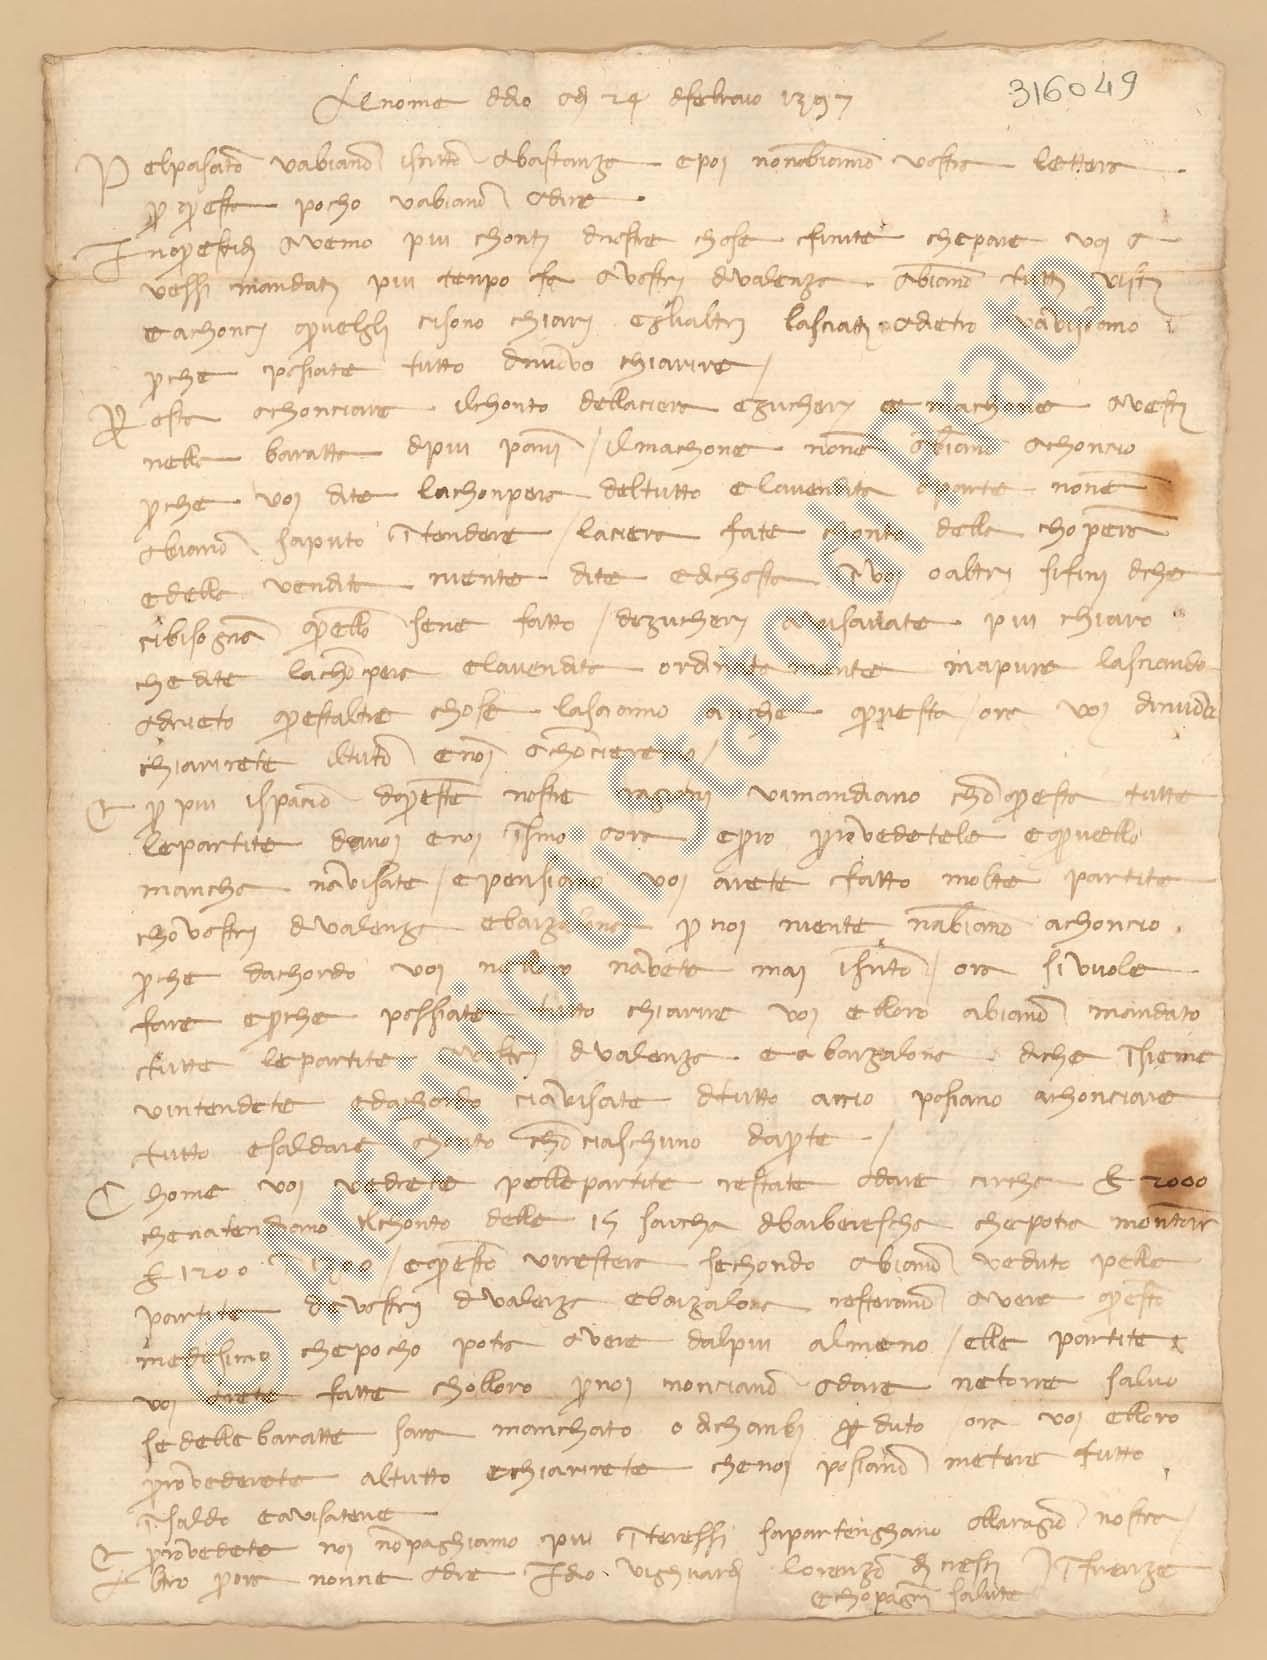 316049
Al nome d dio adì 24 d febraio 1397
Pel pasato v abiamo iscritto a bastanza e poi non abiamo vostra lettera
per questa pocho v abiamo a dire
In questi dì avemo più chonti d nostre chose finite che pare voi a
vessi mandati più tenpo fa a vostri d Valenza abiamo tutti visti
e achonci quelgli ci sono chiari e gli altri lasciati adietro v avisiamo
perche posiate tutto d nuovo chiarire
Resta achonciare il chonto dell aciera e zucheri e machone avesti
nella baratta d più panni / il machone none abiamo achoncio
perche voi dite la chonpera del tutto e la vendita a parte none
abiamo saputo intendere / l aciera fate chonto della chopera
e della vendita niente dite e di chosta voi o altri si finì d che
ci bisogna quello se n e fatto / de zucheri avisavate più chiaro
che dite la chonpera e la vendita ordinatamente ma pure lasciando
adrieto quest altre chose lasciamo anche questa / ora voi di nuovo
chiarirete il tutto e noi achoncieremo /
E per più ispacio d queste nostre ragioni vi mandiamo chon questa tutte
le partite da voi e noi insino a ora e però provedetele e quello
mancha n avisate / e pensiamo voi arete fatto molte partite
cho vostri d Valenza e Barzalona per noi niente n abiamo achoncio
perche d achordo voi nelloro n avete mai iscritto / ora si vuole
fare e perche possiate tutto chiarire voi e lloro abiamo mandato
tutte le partite a vostri d Valenza e a Barzalona di che insieme
v intendete e d achordo ci avisate d tutto acciò posiano achonciare
tutto e saldare chonto chon ciaschuno da parte /
Chome voi vedrete pelle partite restate a dare circha £ 2000
che n atendiamo il chonto delle 15 sacha d barberescha che potra montar
£ 1200 in 1300 / e questo vi restera sechondo abiamo veduto pelle
partite de vostri d Valenza e Barzalona resteranno avere questo
medesimo che pocho potra avere dal più al meno / e lle partite
voi arete fatte cholloro per noi non ci anno a dare ne torre salvo
se delle baratte sara manchato o di chanbi perduto ora voi e lloro
provederete al tutto e chiarirete che noi posiamo metere tutto
in saldo e avisatene
E provedete noi non paghiamo più interessi s apartenghano alla ragione nostra /
Altro per ora non c e a dire Idio vi ghuardi Lorenzo di Cresci in Firenze
e chopagni salute
© Archivio di Stato di Prato